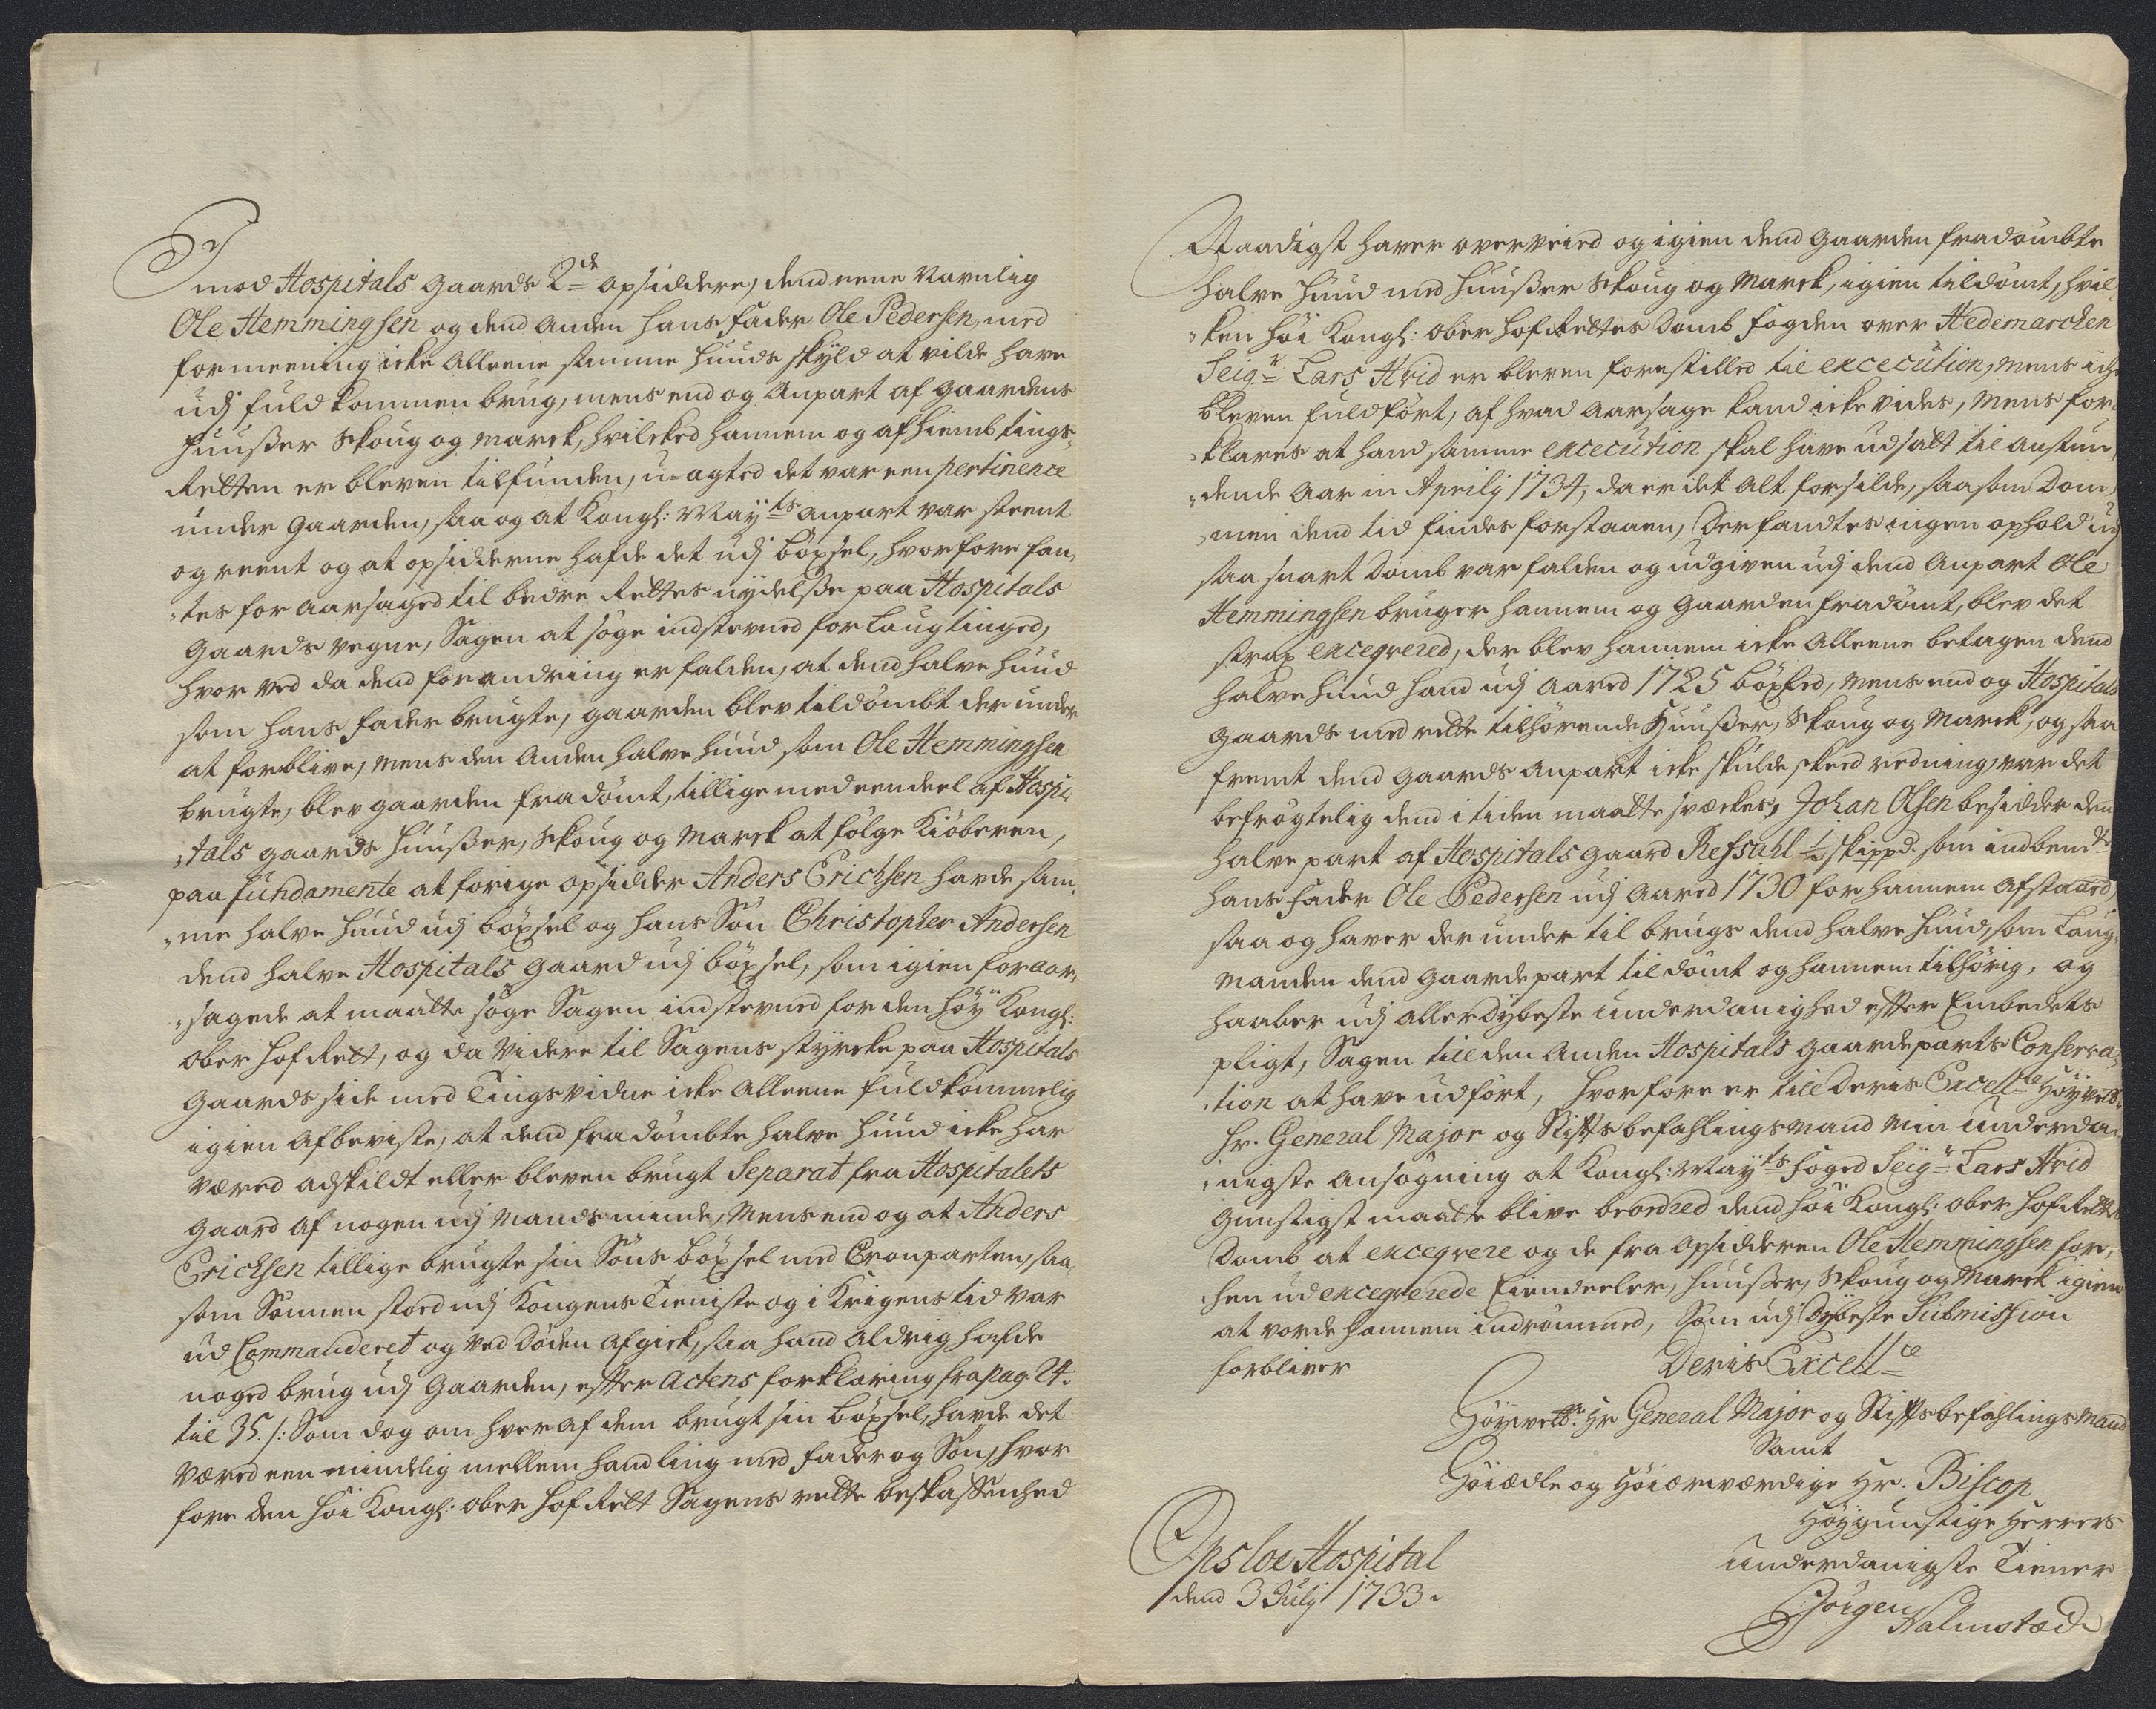 Imod Hospitals Gaards 2de opsiddere, dend eene Navnlig
Ole Hemmingsen og dend Anden hans fader Ole Pedersen, med
formeening icke Alleene samme huuds skÿld at vilde have
udj fuldkommen brug, mens end og Anpart af gaardens
huusser Skoug og Marck, hvilcked hannem og af hiembtings-
Retten er bleven tilfunden, u-agted det var een pertinence
under Gaarden, saa og at Kongl: Maÿts anpart var skeent
og reent og at opsidderne hafde det udj böxsel, hvorfore fan,
,tes for aarsaged til bedre Rettes nÿdelsse paa Hospitals
Gaards vegne, Sagen at söge indstevned for Laugtinged,
hvor ved da dend forandring er falden, at dend halve huud
som hans fader brugte, gaarden blev tildömbt der under
at forblive, mens den Anden halve huud som Ole Hemmingsen
brugte, blev gaarden fradömt, tillige med eendeel af Hospi,
,tals gaards huusser, Skoug og Marck at fölge Kiöberen,
paa fundamente at forige opsidder Anders Erichsen havde sam,
,me halve huud udj böxsel og hans Sön Christopher Andersen
dend halve Hospitals Gaard udj böxsel, som igien foraar,
,sagede at maatte söge Sagen indstevned for den höÿ Kongl:
ober hof Rett, og da videre til Sagens stÿrcke paa Hospitals
Gaards side med Tingsvidne icke Alleene fuldkommelig
igien Afbeviste, at dend fradömbte halve huud icke har
væred adskildt eller bleven brugt Separat fra Hospitalets
gaard af nogen udj Mands minde, Mens end og at Anders
Erichsen tillige brugte sin Söns böxsel med Cronparten, saa,
som Sönnen stoed udj Kongens Tieniste og i Krigens tid var
ud Commanderet og ved Döden Afgick, saa hand Aldrig hafde
noged brug udj Gaarden, effter Actens forklaring fra pag. 24.
til 35. /: Som dog om hver af dem brugt sin böxsel, havde det
været een mindelig mellem handling med fader og Sön, hvor
fore den höi Kongl: ober hof Rett Sagens rette beskaffenhed
Naadigst haver overveied og igien dend Gaarden fradömbte
halve huud med huusser Skoug og Marck, igien tildömt, hvil,
,ken höi Kongl: ober hof Rettes Domb fogden over Hedemarchen
Seigr Lars Hvid er bleven forestilled til excecution, mens icke
bleven fuldfört, af hvad Aarsage kand icke vides, Mens for,
,klares at hand samme excecution skal have udsatt til anstun,
,dende Aar in Aprilj 1734, da er det Alt forsilde, saasom Dom,
,men dend tid findes forstaaen, Der fandtes ingen ophold udj
saa snart Domb var falden og udgiven udj dend Anpart Ole
Hemmingsen bruger hannem og Gaarden fradömt, blev det
strax exceqvered, der blev hannem icke Alleene betagen dend
halve huud hand udj Aared 1725 böxled, Mens end og Hospitals
Gaards med rette tilhörende Huusser, Skoug og Marck, og saa
fremt dend Gaards Anpart icke skulde skeed redning, var det
befrögtelig dend i tiden maatte svækkes, Johan Olsen besidder den
halve part af Hospitals Gaard Refsahl ½ skippd. som indbemte
hans fader Ole Pedersen udj Aared 1730 for hannem Afstaaed,
saa og haver der under til brugs dend halve huud, som Laug,
Manden dend Gaardepart tildömt og hannem tilhörig, og
haaber udj Allerdÿbeste underdanighed effter Embedets
pligt, Sagen till den Anden Hospitals Gaardeparts Conserva,
,tion at have udfört, hvorfore er till Deris Excellce Höÿvelb:
Hr. General Major og Stiftsbefahlingsmand Min underda,
,nigste Ansögning at Kongl: Maÿts foged Seigr Lars Hvid
gunstigst maatte blive beordred dend höi Kongl: ober hof Rettes
Domb at exceqvere og de fra Opsidderen Ole Hemmingsen for,
,hen ud exceqverede Eiendeeler, huusser, Skoug og Marck igien
at vorde hannem indrömmed, Som udj Dÿbeste Submission
forbliver
Deris Excellce
Höÿvelb: Hr General Major og Stiftsbefahlings Mand
Samt
Höiædle og Höiærværdige Hr. Biscop
Höÿgunstige Herrers
underdanigste Tiener
Jörgen Halmstad
Opsloe Hospital
dend 3 Julj 1733.